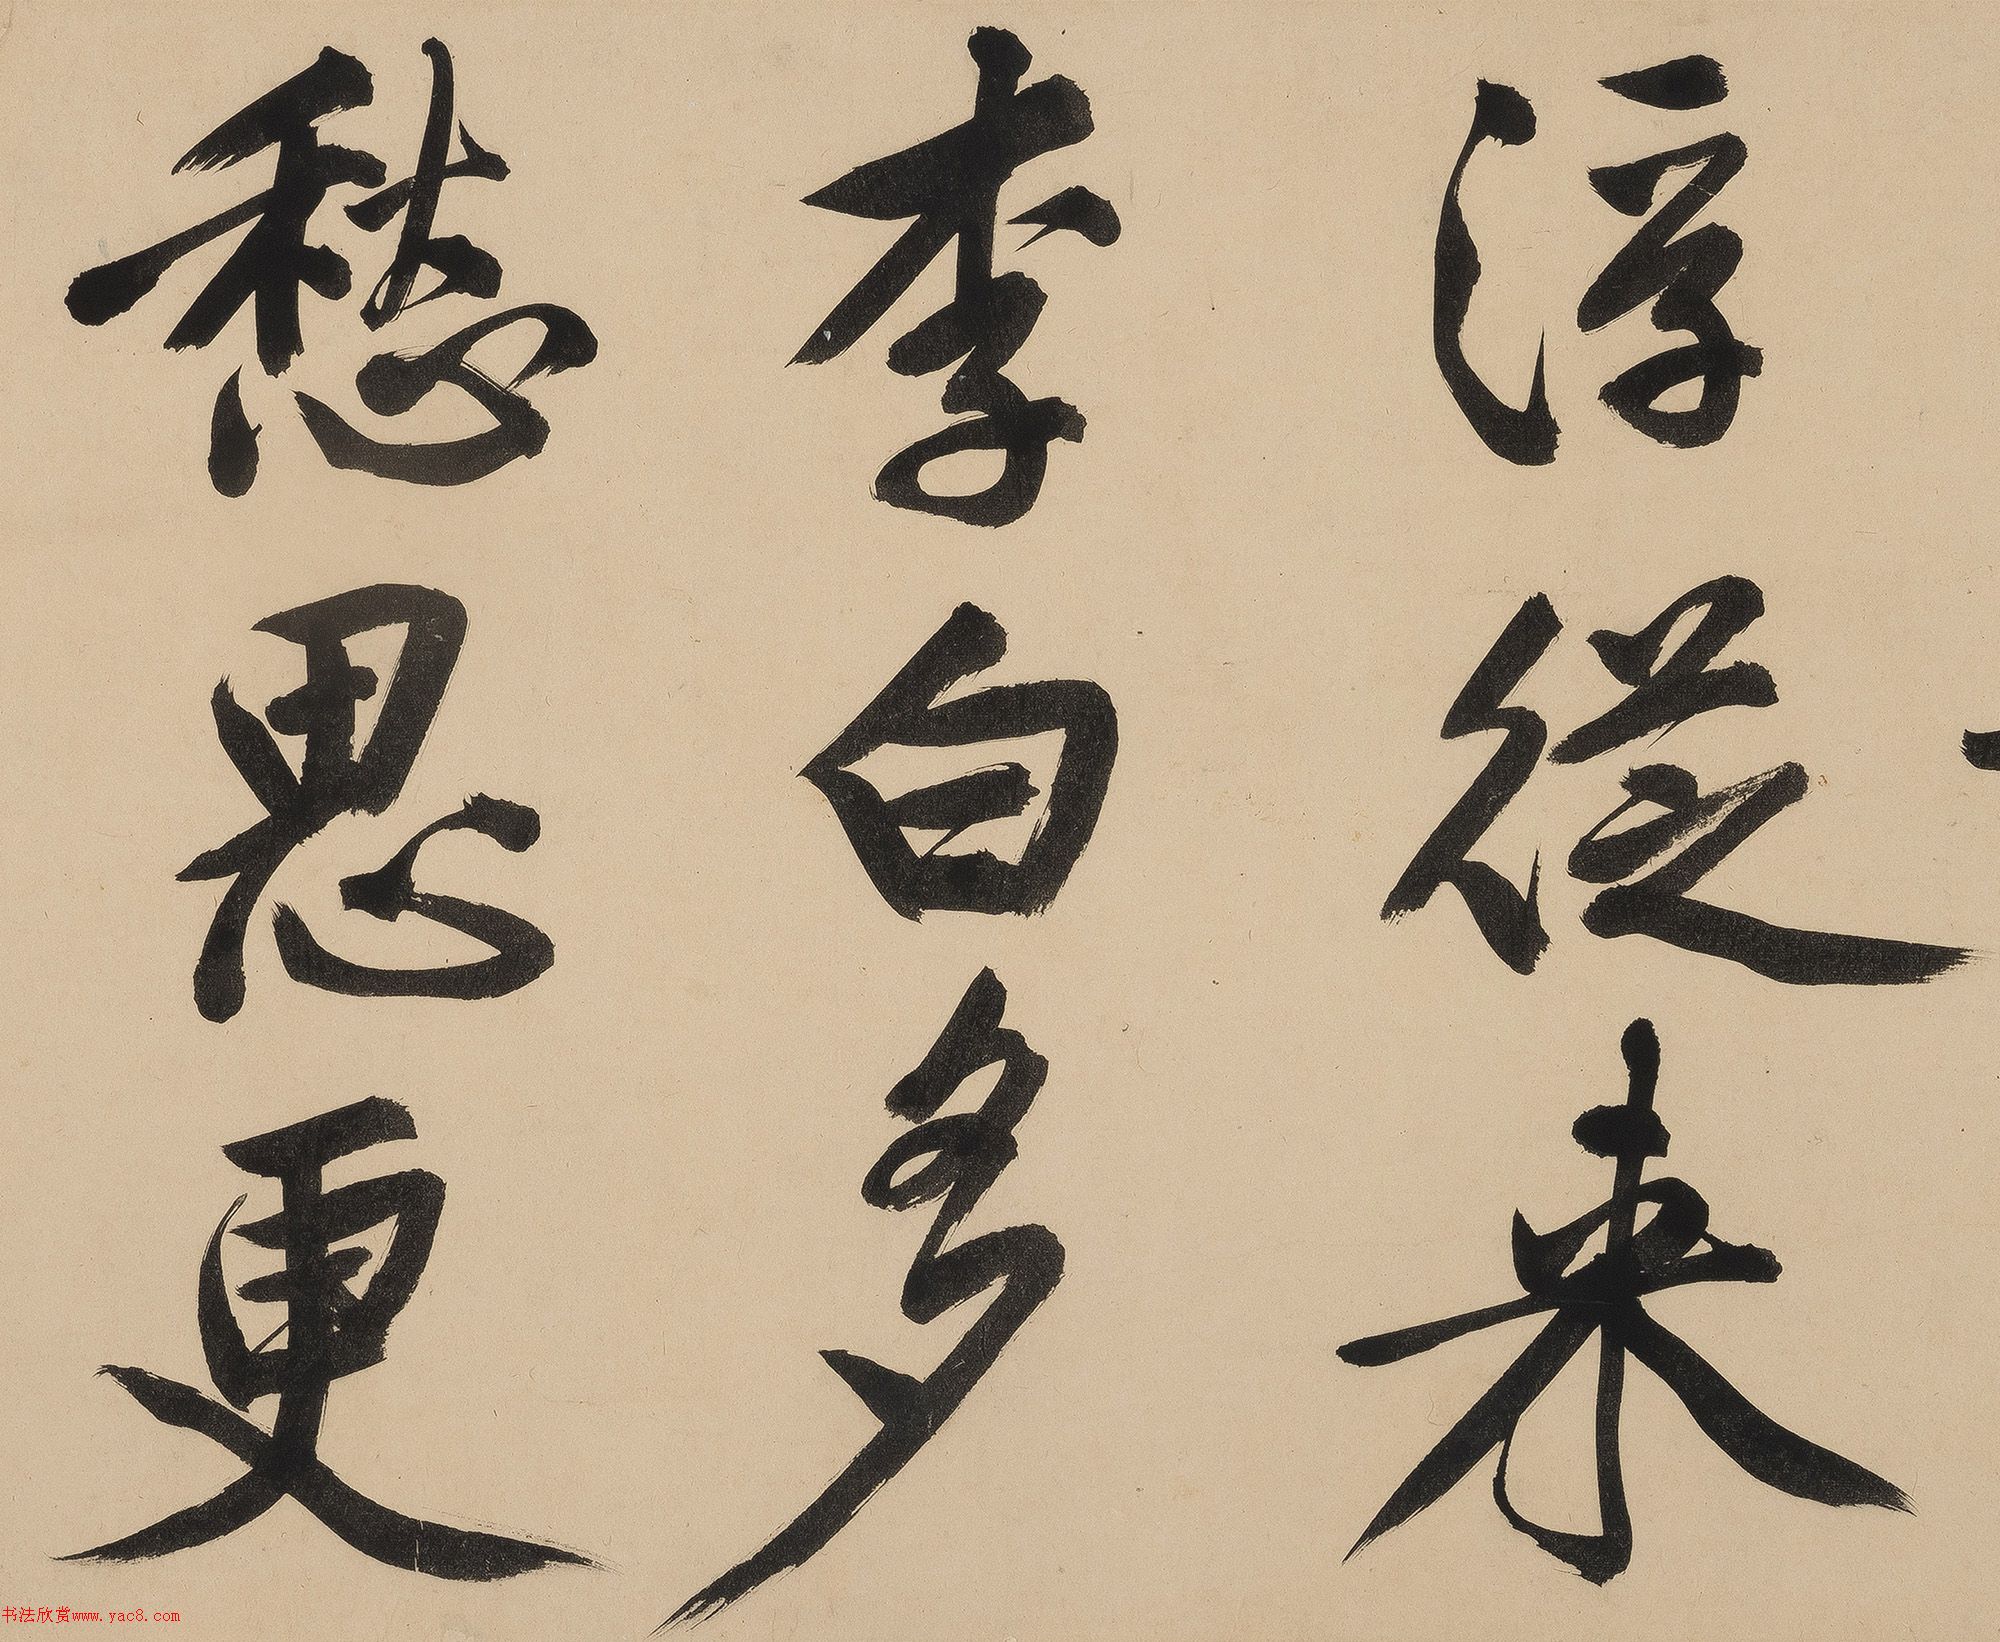 浮從来
李白多
愁思更
书法欣赏www.yac8.com